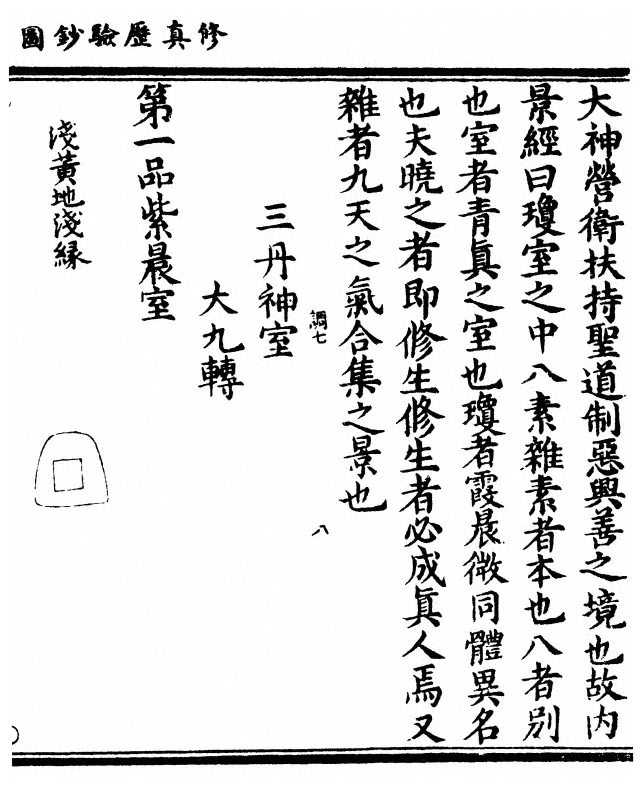 修真歷驗鈔圖
大神營衛扶持聖道制惡興善之境也故内
景經曰瓊室之中八素雜素者本也八者别
也室者青真之室也瓊者霞晨微同體異名
也夫曉之者即修生修生者必成真人焉又
雜者九天之氣合集之景也
調七
八
三丹神室
大九轉
第一品紫晨室
淺黃地淺緑